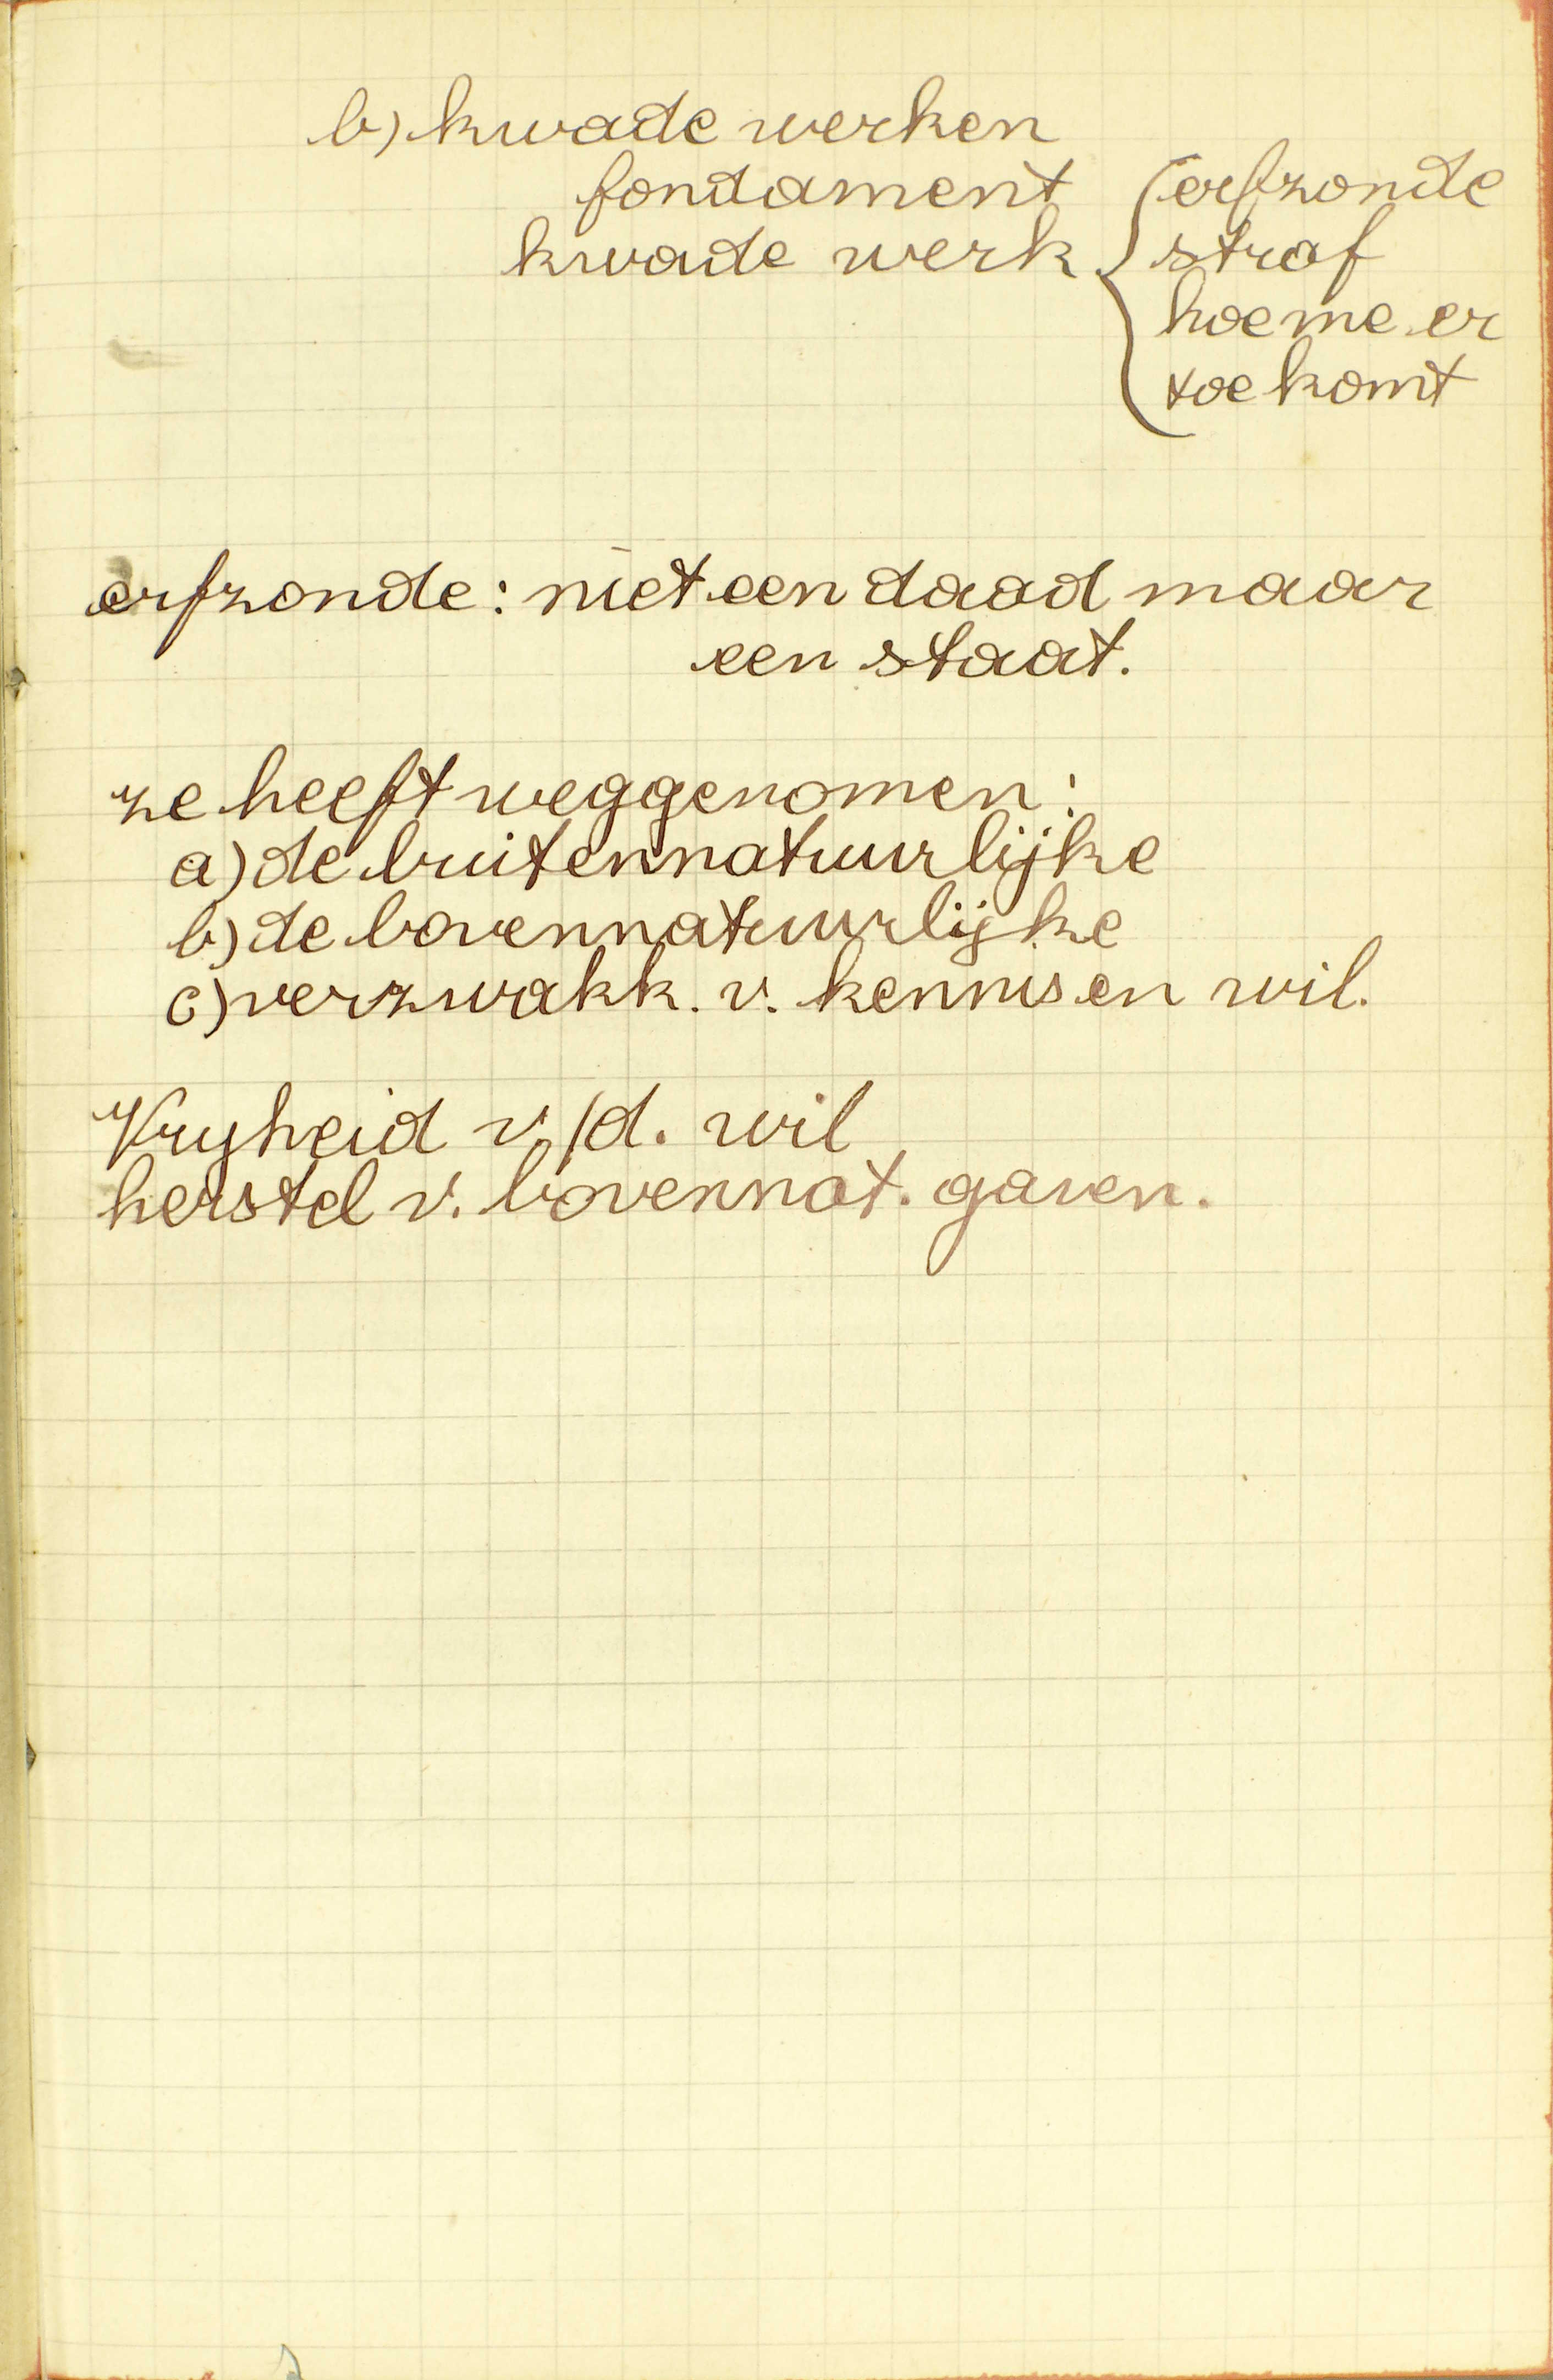 b) kwade werken
fondament
kwade werk
erfzonde
straf
hoe me er
toe komt
erfzonde: niet een daad maar
een staat.
ze heeft weggenomen:
a) de buitennatuurlijke
b) de bovennatuurlijke
c) verzwakk. v. kennis en wil.
Vryheid v/d. wil
herstel v. bovennat. gaven.